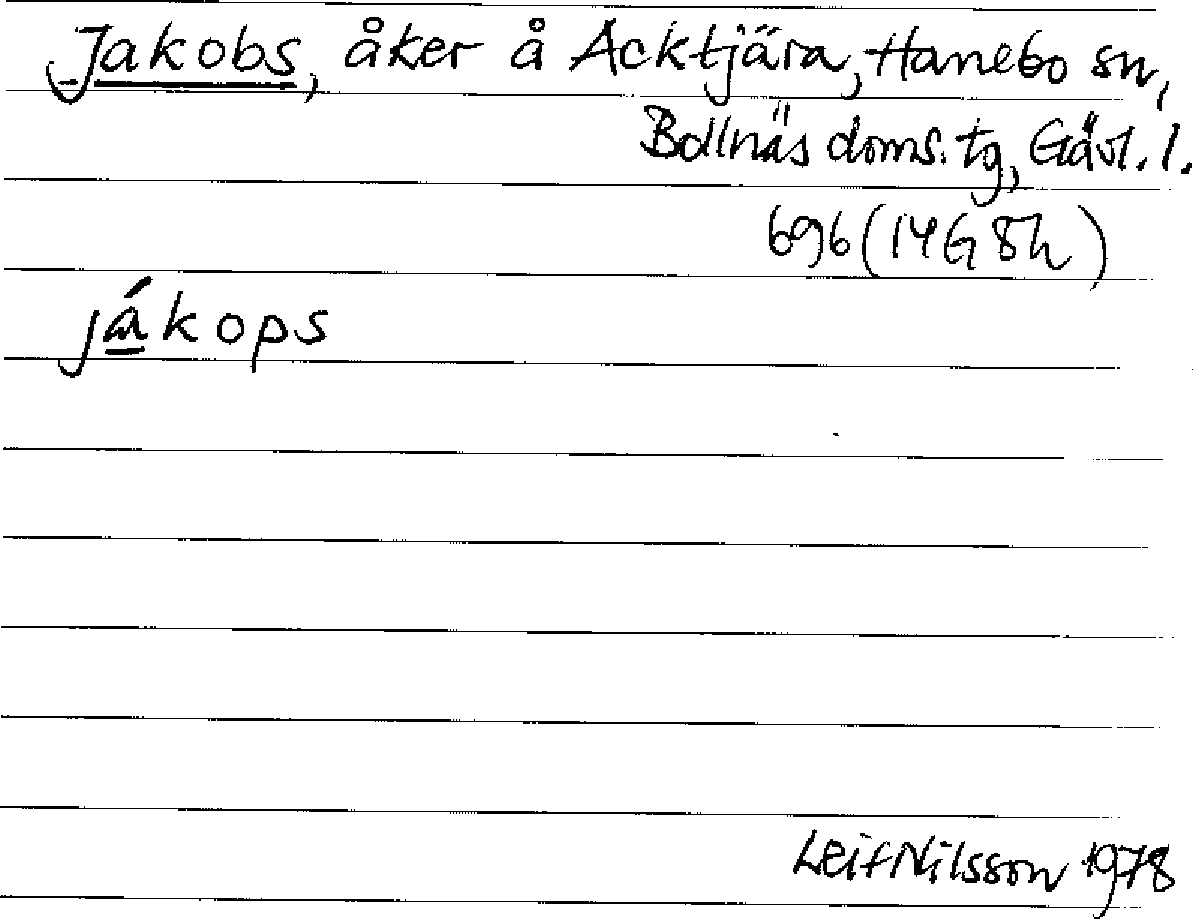 Jakobs, åker å Acktjära, Hanebo sn,
Bollnäs doms. tg, Gävl. l.
696 (14G 8h)
jákops
Leif Nilsson 1978